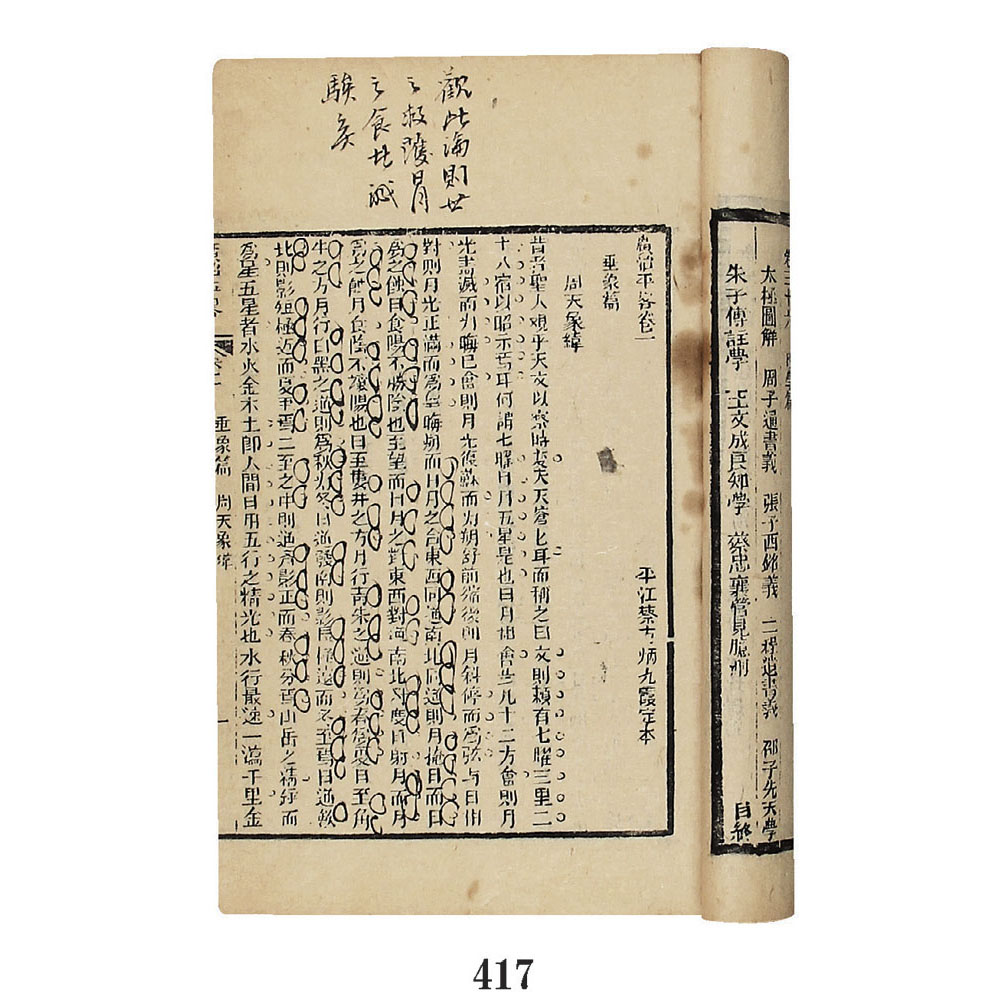 太極圖解 周子通書義 張子西銘義 二程遺書義 邵子先天學
朱子傳註學 王文成良知學 蔡忠襄管見臆測
目終
觀此論則世
之救護日月
之食 誠
騃矣
廣治平畧卷二
平江蔡方炳九霞定本
垂象篇
周天象緯
昔者聖人觀乎天文以察時變夫天蒼蒼耳而稱之曰文則賴有七曜三垣二
十八宿以昭示焉耳何謂七曜日月五星是也日月相會 凡十二方會則月
光盡滅而為晦已會則月光復蘇而為朔舒前縮後則月斜倚而為弦與日相
對則月光正滿而為望晦朔而日月之合東西同道南北同道則月掩日而日
為之蝕日食陽不勝陰也至望而日月之對東西對道南北對度日射月而月
為之蝕月食陰不讓陽也日至婁井之方月行青朱之道則為春為夏日至角
牛之方月行白黑之道則為秋為冬日道發南則影長極遠而冬至焉日道斂
北則影短極近而夏至焉二至之中則道齊影正而春秋分焉山岳之精浮而
為星五星者水火金木土即人間日用五行之精光也水行最速一瀉千里金
垂象篇 周天象緯 一
417